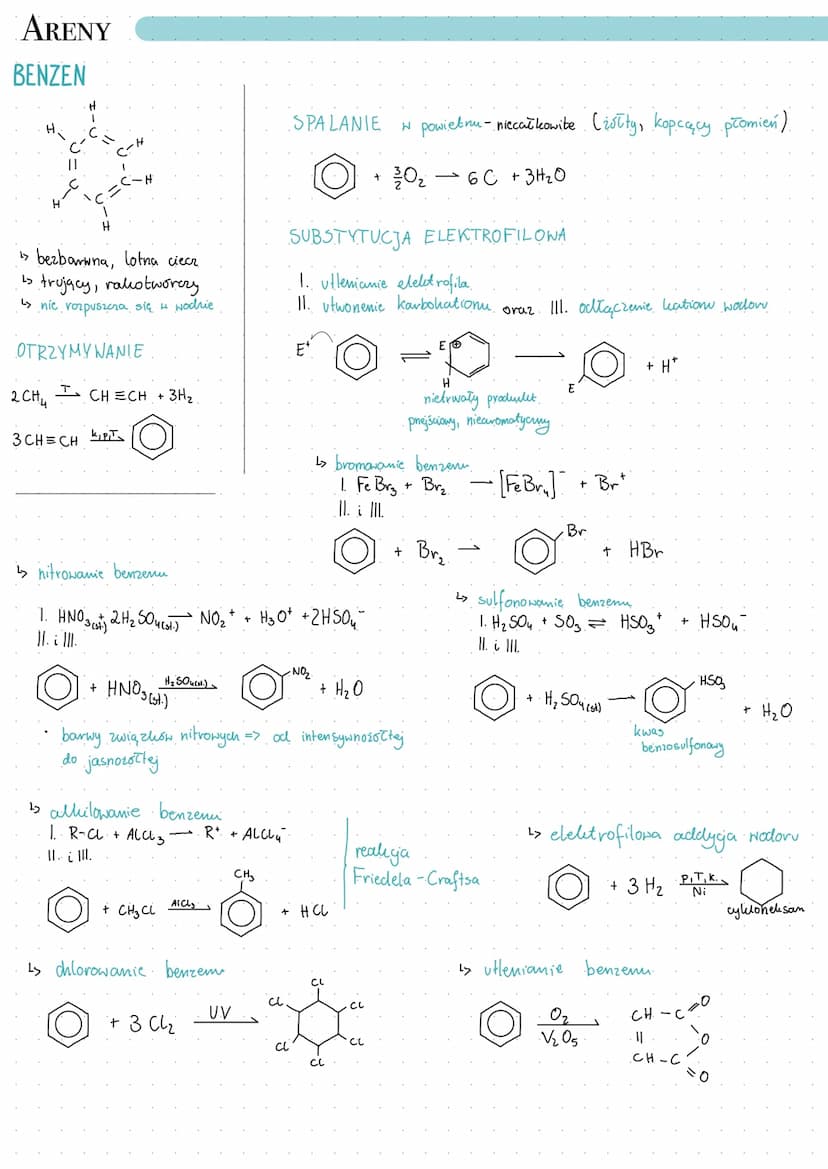 ARENY
BENZEN
H
H C H
C C
C C-H
H C
H
↳ bezbarwna, lotna ciecz
↳ trujący, rakotwórczy
↳ nie rozpuszcza się w wodzie
OTRZYMYWANIE
2CH₄ —T→ CH≡CH + 3H₂
3CH≡CH —k,p,T→
SPALANIE w powietrzu - niecałkowite (żółty, kopcący płomień)
+ 3/2 O₂ → 6C + 3H₂O
SUBSTYTUCJA ELEKTROFILOWA
I. utlenianie elektrofila
II. utworzenie karbokationu oraz III. odłączenie kationu wodoru
E⁺ ⇌ E ⊕ H → E + H⁺
nietrwały produkt
przejściowy, niearomatyczny
↳ bromowanie benzenu
I. FeBr₃ + Br₂ → [FeBr₄]⁻ + Br⁺
II. i III.
+ Br₂ → Br + HBr
↳ nitrowanie benzenu
I. HNO₃(st.) + 2H₂SO₄(st.) ⇌ NO₂⁺ + H₃O⁺ + 2HSO₄⁻
II. i III.
+ HNO₃(st.) —H₂SO₄(st.)→ NO₂ + H₂O
• barwy związków nitrowych => od intensywnożółtej
do jasnożółtej
↳ sulfonowanie benzenu
I. H₂SO₄ + SO₃ ⇌ HSO₃⁺ + HSO₄⁻
II. i III.
+ H₂SO₄(st) → HSO₃ + H₂O
kwas
benzosulfonowy
↳ alkilowanie benzenu
I. R-Cl + AlCl₃ → R⁺ + AlCl₄⁻
II. i III.
+ CH₃Cl —AlCl₃→ CH₃ + HCl
reakcja
Friedela-Craftsa
↳ elektrofilowa addycja wodoru
+ 3H₂ —p,T,k. Ni→
cykloheksan
↳ chlorowanie benzenu
+ 3Cl₂ —UV→ Cl Cl Cl Cl Cl Cl
↳ utlenianie benzenu
O₂
V₂O₅
CH-C=O
|| O
CH-C=O